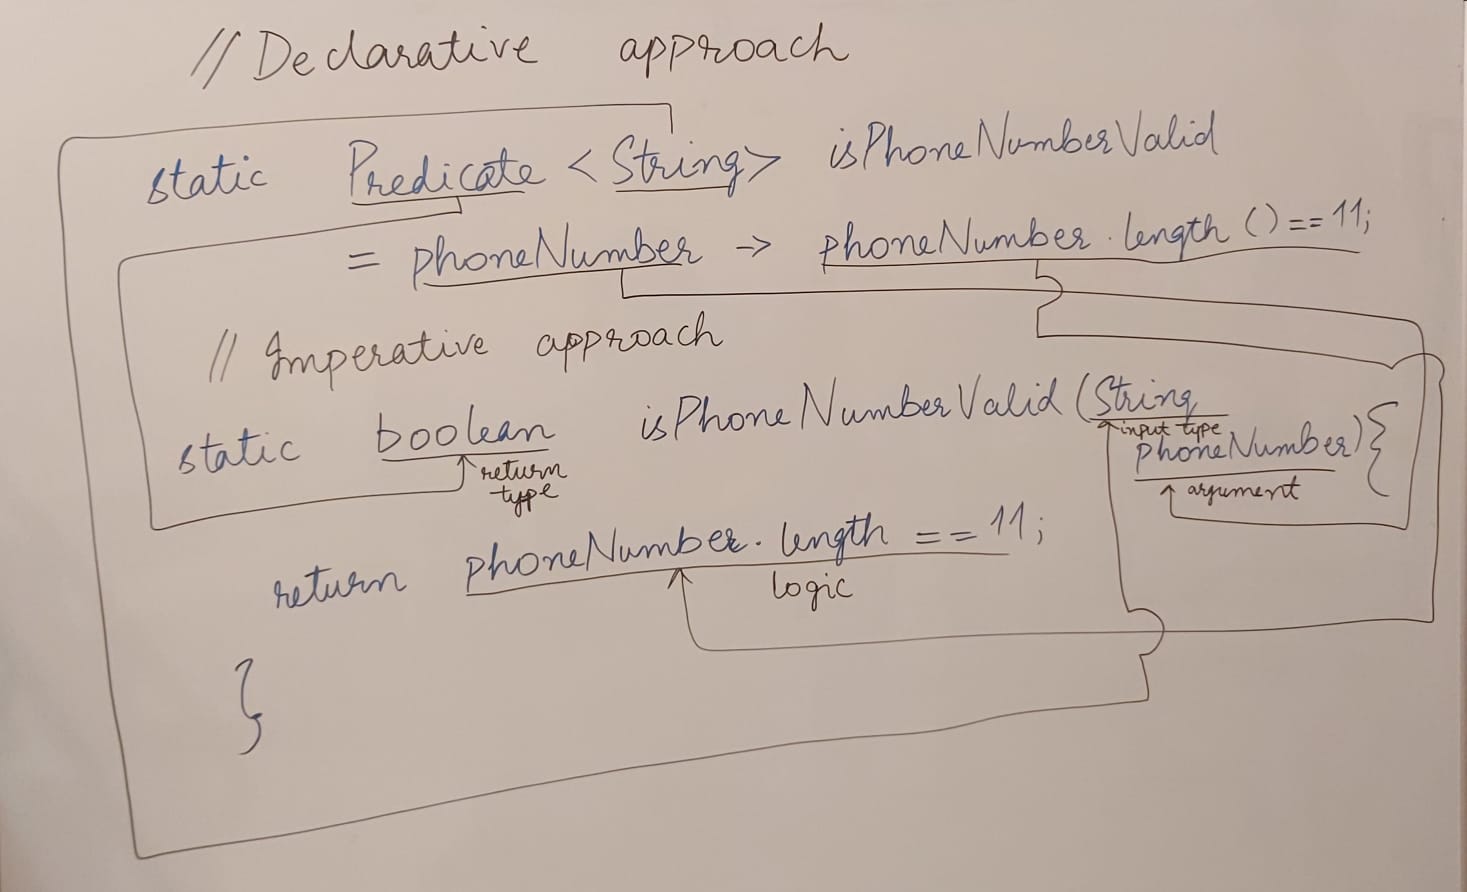 // Declarative approach
static Predicate <String> isPhoneNumberValid
= phoneNumber -> phoneNumber.length () == 11;
// Imperative approach
static boolean isPhoneNumberValid (String
input type
phoneNumber) {
return
type
argument
return phoneNumber.length == 11;
logic
}